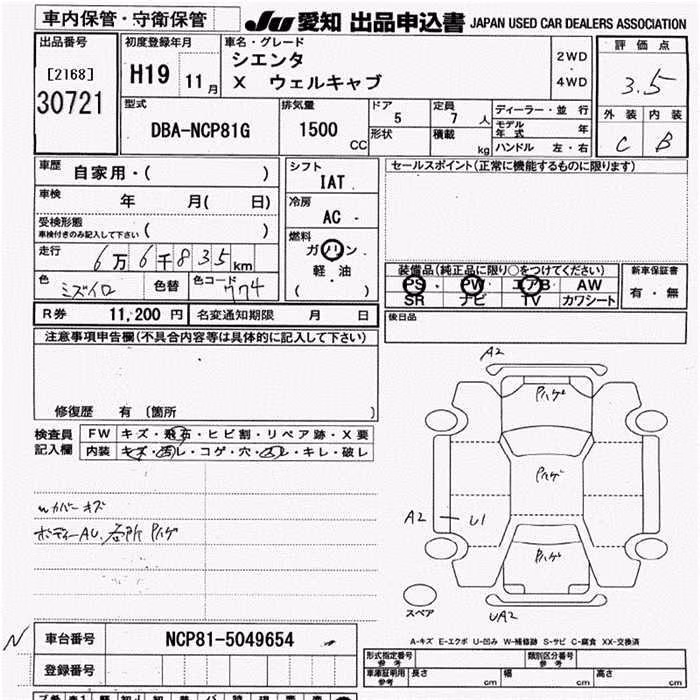 車内保管・守衛保管
JU 愛知 出品申込書 JAPAN USED CAR DEALERS ASSOCIATION
出品番号 初度登録年月 車名・グレード 評価点
[2168] 30721
H19 11月
シエンタ
X ウェルキャブ
2WD
・
4WD
3.5
外装 内装
C B
型式 排気量 ドア 定員 ディーラー・並行
DBA-NCP81G 1500 CC 5 7 人
モデル年式 年
形状 積載 kg ハンドル 左・右
車歴 自家用・( )
シフト IAT
セールスポイント(正常に機能するものに限ります)
車検 年 月( 日)
冷房 AC -
受検形態
車検付きのみ記入して下さい ( )
燃料
ガソリン
・
軽・油
( )
走行 6万6千835km
色 ミズイロ 色替 色コード 774
装備品(純正品に限り○をつけてください) 新車保証書
PS・PW・エアB・AW 有・無
SR ナビ TV カワシート
R券 11,200円 名変通知期限 月 日
後日品
注意事項申告欄(不具合内容等は具体的に記入して下さい)
修復歴 有 〔箇所 〕
検査員記入欄
FW キズ・飛石・ヒビ割・リペア跡・X要
内装 キズ・汚レ・コゲ・穴・スレ・キレ・破レ
カバーキズ
ボディーAU、各所Pハゲ
A2
Pハゲ
Pハゲ
A2 U1
Pハゲ
スペア
UA2
A-キズ E-エクボ U-凹み W-補修跡 S-サビ C-腐食 XX-交換済
N
車台番号 NCP81-5049654
登録番号
形式指定番号 参考 類別区分番号 参考
車庫証明用 参考 長さ cm 幅 cm 高さ cm